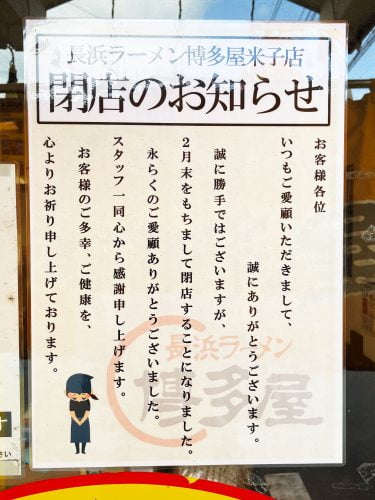 長浜ラーメン博多屋米子店
閉店のお知らせ
お客様各位
いつもご愛顧いただきまして、
誠にありがとうございます。
誠に勝手ではございますが、
2月末をもちまして閉店することになりました。
永らくのご愛顧ありがとうございました。
スタッフ一同心から感謝申し上げます。
お客様のご多幸、ご健康を、
心よりお祈り申し上げております。
長浜ラーメン
博多屋